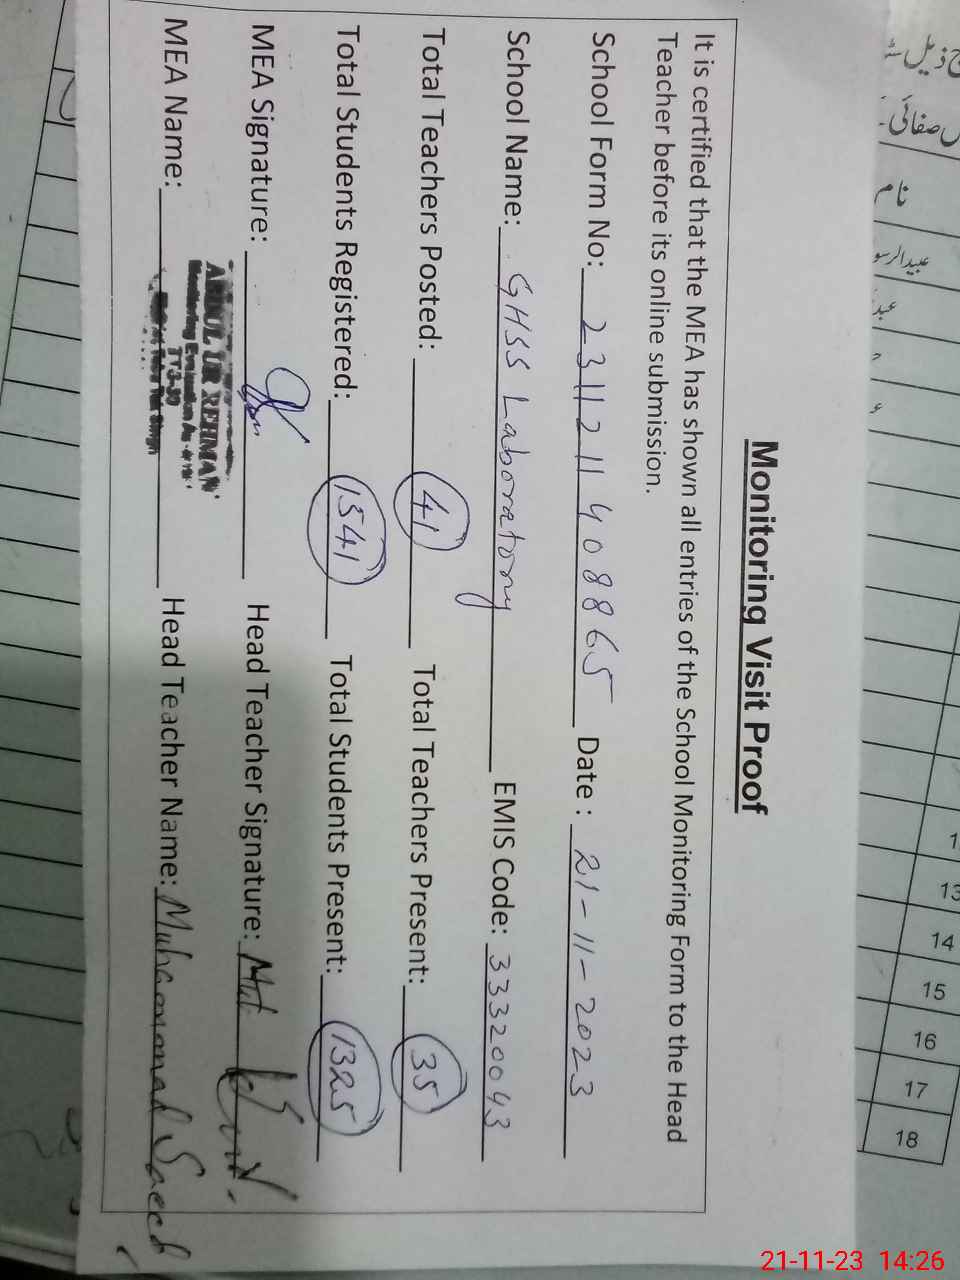 Monitoring Visit Proof
It is certified that the MEA has shown all entries of the School Monitoring Form to the Head
Teacher before its online submission.
School Form No: 23112114 08865 Date : 21-11-2023
School Name: GHSS Laboratory EMIS Code: 33320043
Total Teachers Posted: 41 Total Teachers Present: 35
Total Students Registered: 1541 Total Students Present: 1325
MEA Signature: Head Teacher Signature:
ABDUL UR REHMAN
Monitoring Evaluation
MEA Name: Head Teacher Name: Muhammad Saeed
ذیل
صفائی
نام
عبیدالرسو
عبد
13
14
15
16
17
18
21-11-23 14:26